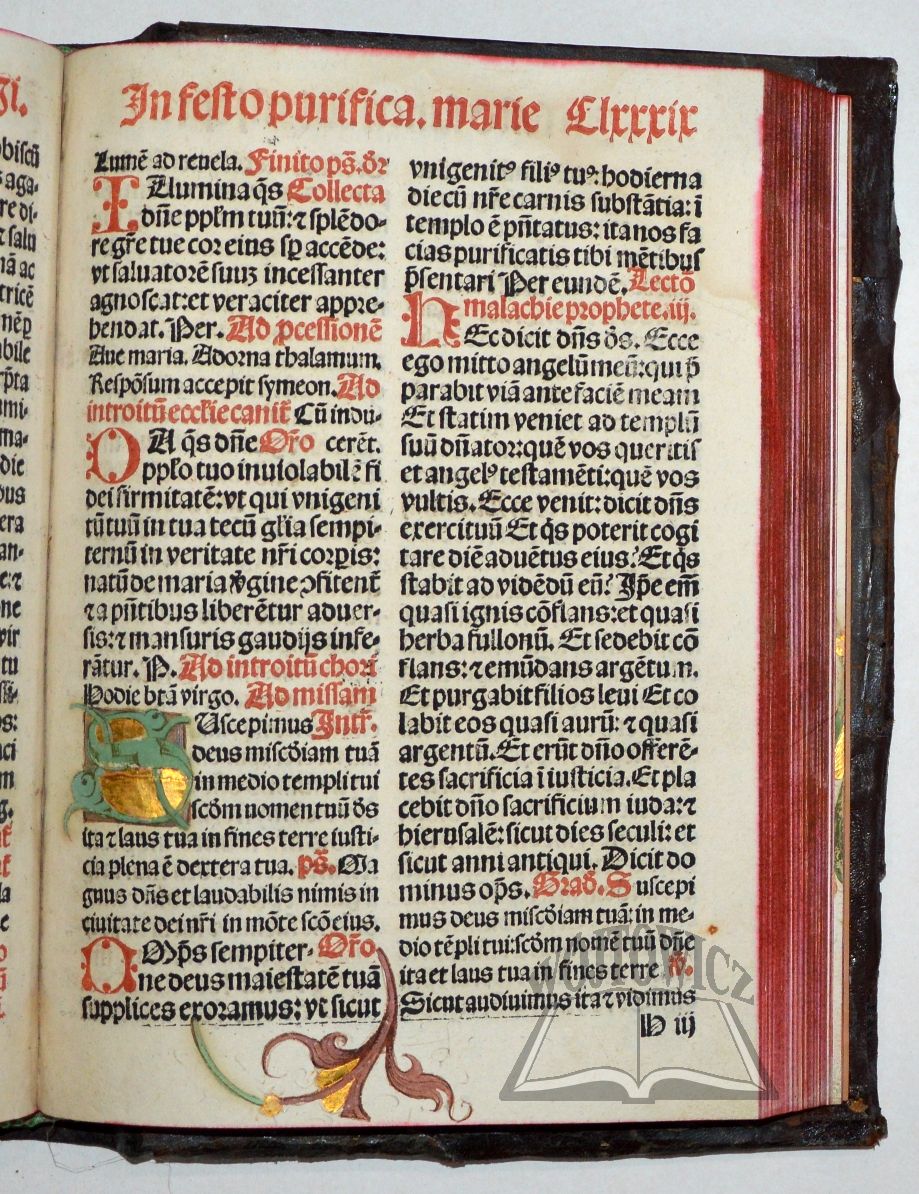 In festo purifica. marie Clxxxix
Lumē ad reuela. Finito ps̄. dr̄
Illumina q̄s Collecta
dn̄e pp̄lm tuū: ⁊ splēdo-
re gr̄e tue cor eius sp̄ accēde:
vt saluatorē suuꝫ incessanter
agnoscat: et veraciter appre-
hendat. Per. Ad ꝓcessionē
Aue maria. Adorna thalamum.
Respōsum accepit symeon. Ad
introitū eccl̄ie canit᷑ Cū indu-
DA q̄s dn̄e Or̄o cerēt.
pp̄lo tuo inuiolabilē fi
dei firmitatē: vt qui vnigeni
tū tuū in tua tecū gl̄ia sempi-
ternū in veritate nr̄i corꝑis:
natū de maria ꝟgine ꝯfitent᷑
⁊ a pn̄tibus liberētur aduer-
sis: ⁊ mansuris gaudijs infe-
rātur. P. Ad introitū chori
Hodie btā virgo. Ad missam
SUscepimus Intr̄.
deus misc̄diam tuā
in medio templi tui
scd̄m nomen tuū ds̄
ita ⁊ laus tua in fines terre iusti-
cia plena ē dextera tua. ps̄. Ma
gnus dn̄s et laudabilis nimis in
ciuitate dei nr̄i in mōte scō eius.
OMp̄s sempiter- Or̄o
ne deus maiestatē tuā
supplices exoramus: vt sicut
vnigenitꝰ filiꝰ tuꝰ: hodierna
die cū nr̄e carnis substātia: ī
templo ē pn̄tatus: ita nos fa
cias purificatis tibi mētibus
p̄sentari Per eundē. Lectō
malachie prophete. iij.
HEc dicit dn̄s ds̄. Ecce
ego mitto angelū meū: qui p̄
parabit viā ante faciē meam
Et statim veniet ad templū
suū dn̄ator: quē vos queritis
et angelꝰ testamēti: quē vos
vultis. Ecce venit: dicit dn̄s
exercituū Et q̇s poterit cogi
tare diē aduētus eius? Et q̇s
stabit ad vidēdū eū? Ip̄e em̄
quasi ignis cōflans: et quasi
herba fullonū. Et sedebit cō
flans: ⁊ emūdans argētum.
Et purgabit filios leui Et co
labit eos quasi aurū: ⁊ quasi
argentū. Et erūt dn̄o offerē-
tes sacrificia ī iusticia. Et pla
cebit dn̄o sacrificium iuda: ⁊
hierusalē: sicut dies seculi: et
sicut anni antiqui. Dicit do
minus op̄s. Grad̄. Suscepi
mus deus misc̄diam tuā: in me-
dio tēpli tui: scd̄m nomē tuū dn̄e
ita et laus tua in fines terre ℣.
Sicut audiuimus ita ⁊ vidimus
H iij
WÓJTOWICZ